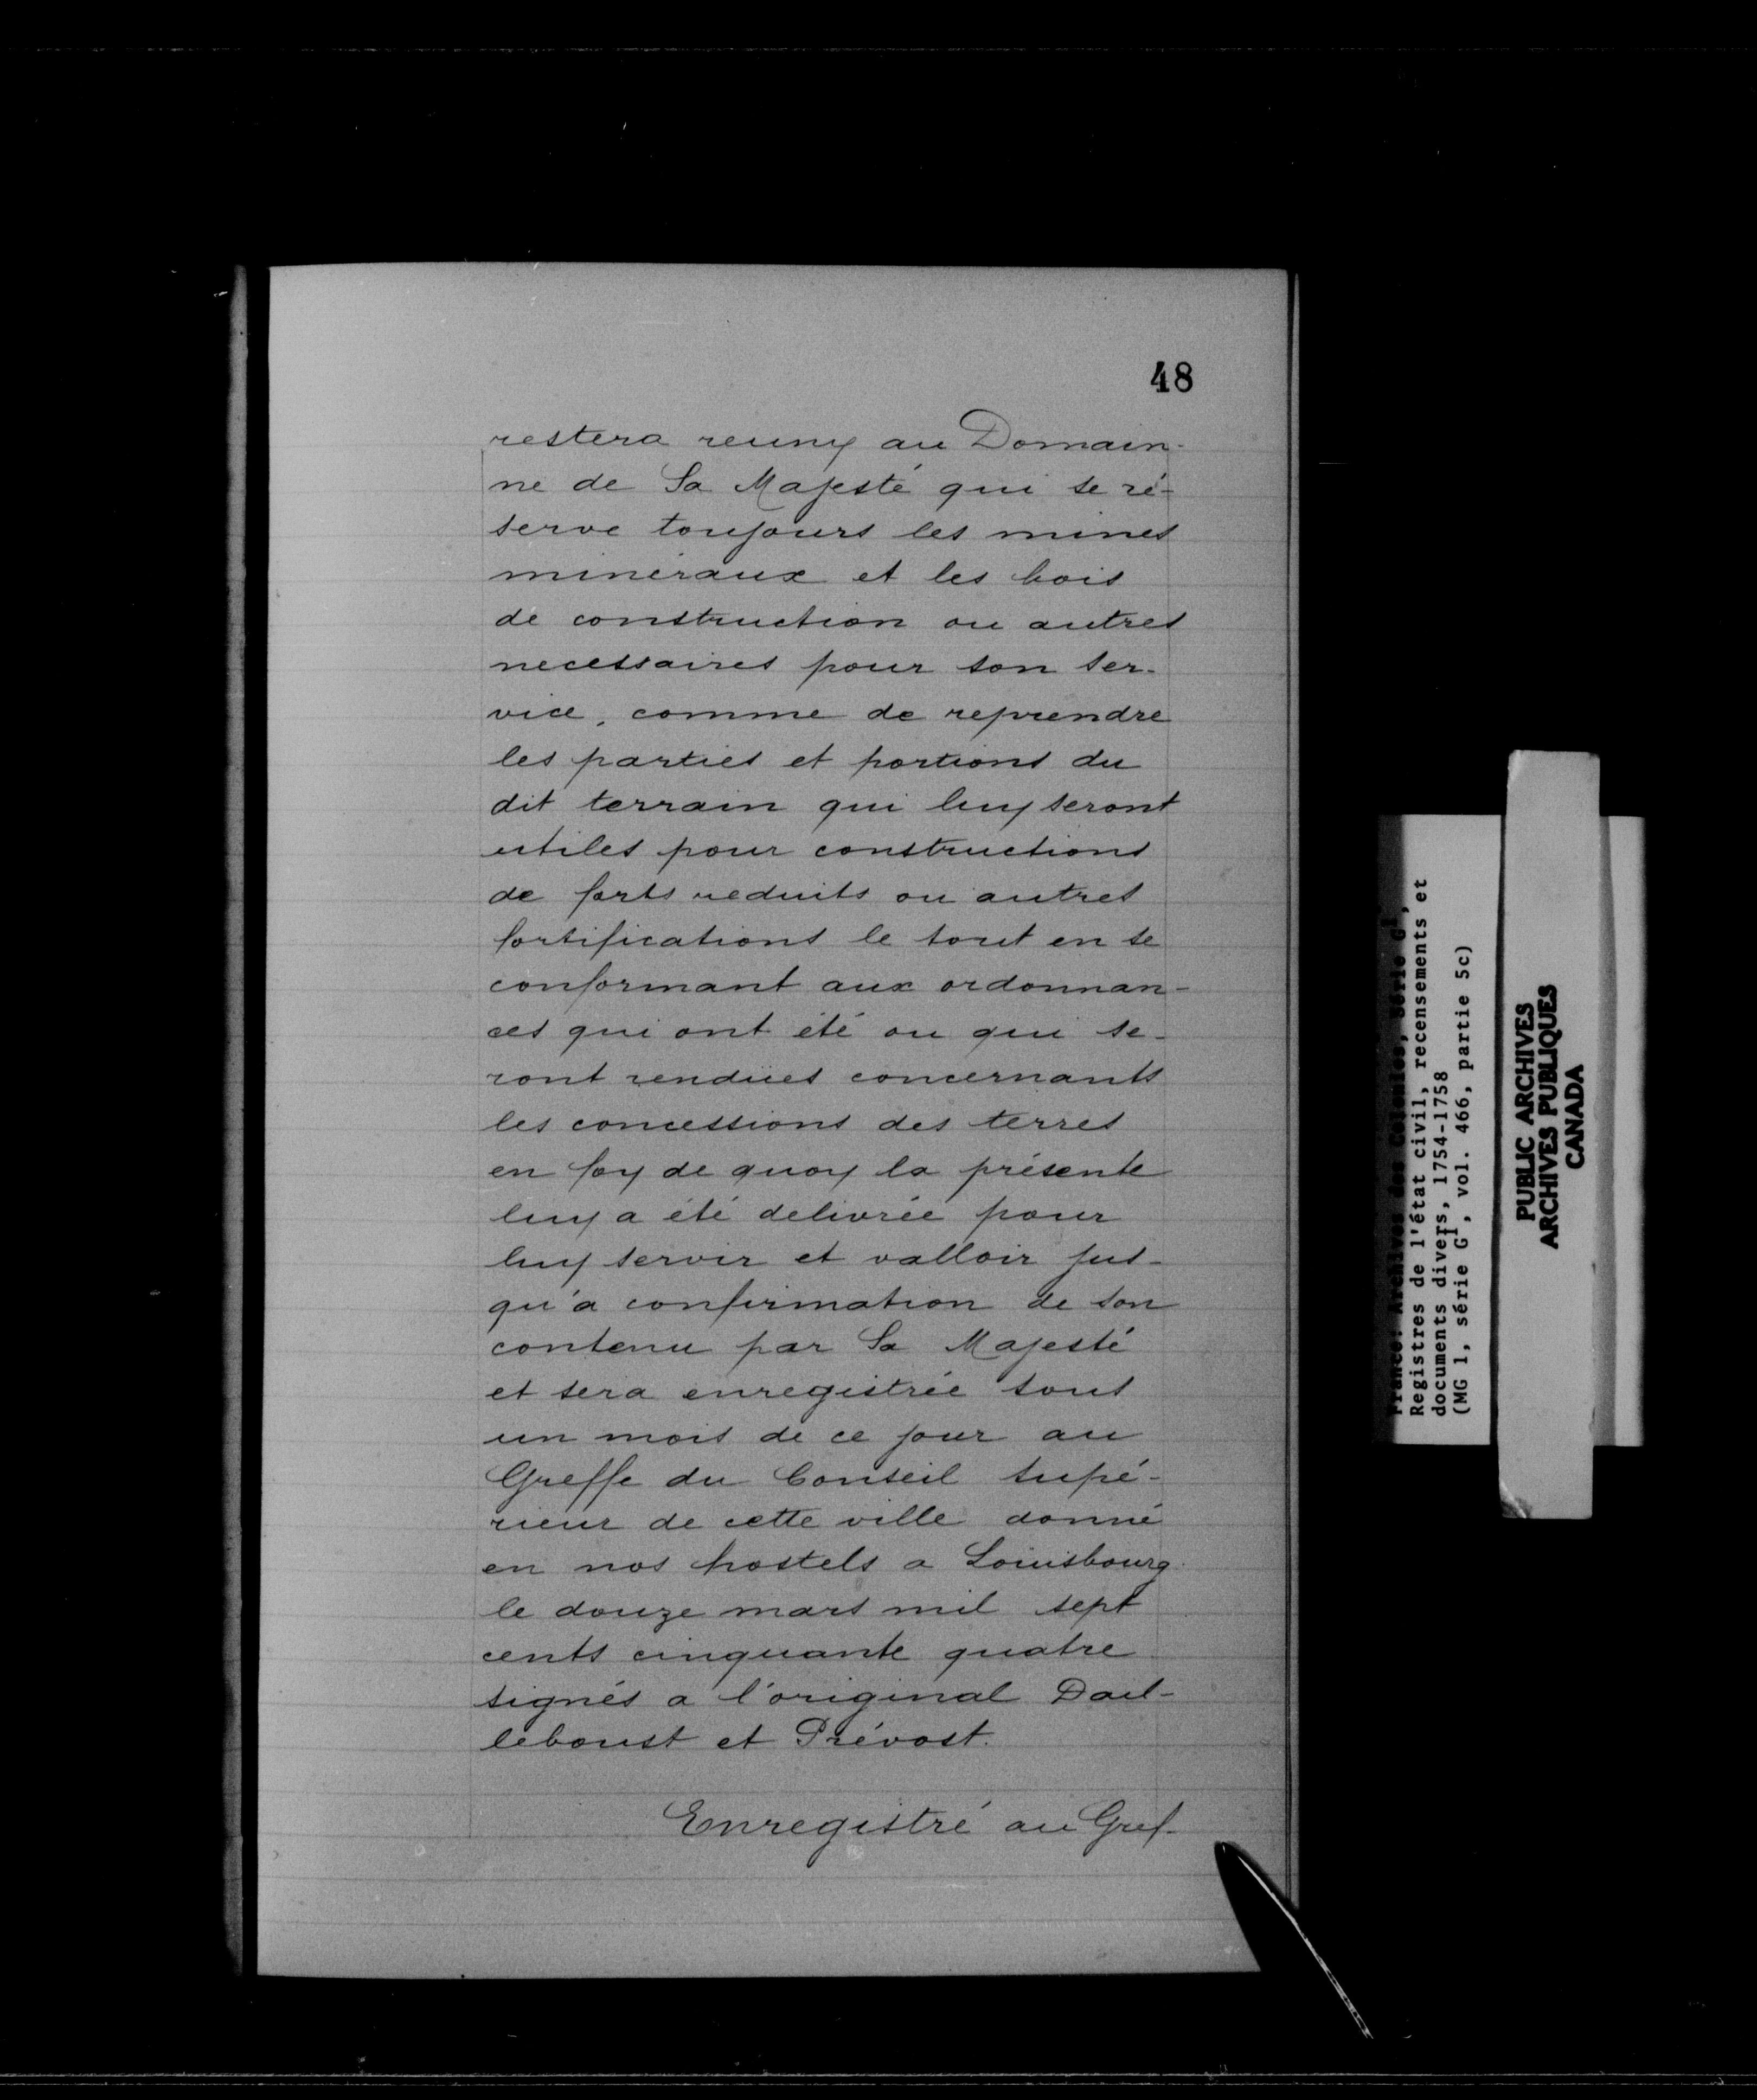 48
restera reuny au Domain-
ne de Sa Majesté qui se ré-
serve toujours les mines
minéraux et les bois
de construction ou autres
necessaires pour son ser-
vice, comme de reprendre
les parties et portions du
dit terrain qui luy seront
utiles pour constructions
de forts reduits ou autres
fortifications le tout en se
conformant aux ordonnan-
ces qui ont été ou qui se-
ront rendües concernants
les concessions des terres
en foy de quoy la présente
luy a été delivrée pour
luy servir et valloir jus-
qu'a confirmation de son
contenu par Sa Majesté
et sera enregistrée sous
un mois de ce jour au
Greffe du Conseil supé-
rieur de cette ville donné
en nos hostels a Louisbourg
le douze mars mil sept
cents cinquante quatre
signés a l'original Dail-
leboust et Prévost.
Enregistré au Gref-
France. Archives des Colonies, Série G1,
Registres de l'état civil, recensements et
documents divers, 1754-1758
(MG 1, série G1, vol. 466, partie 5c)
PUBLIC ARCHIVES
ARCHIVES PUBLIQUES
CANADA